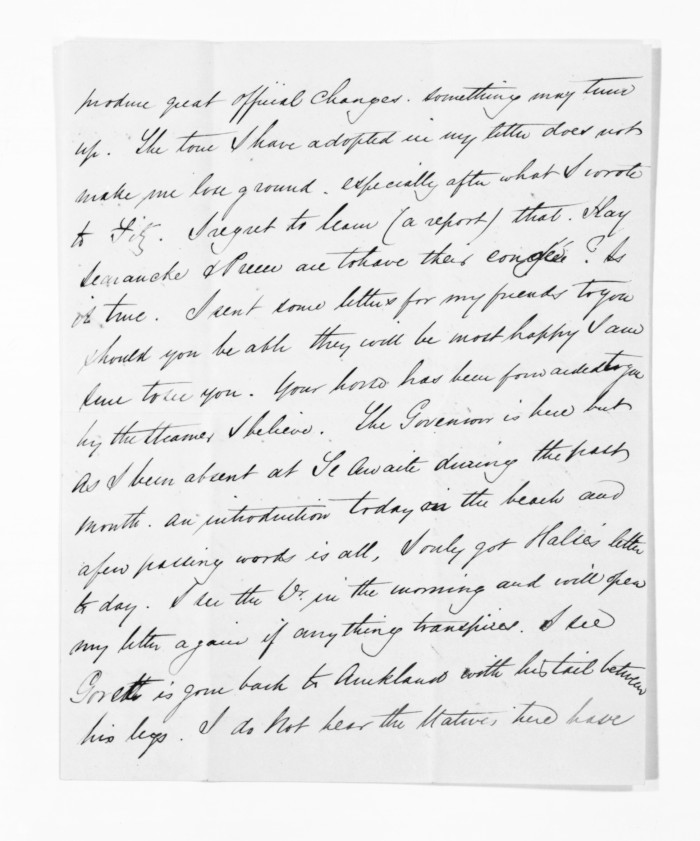 produce great official changes. something may turn
up. The tone I have adopted in my letter does not
make me lose ground. especially after what I wrote
to Fitz. I regret to learn (a report) that. Hay
& are to have their congée? Is
it true. I sent some letters for my friends to you
should you be able they will be most happy I am
sure to see you. Your horse has been forwarded to you
by the steamer I believe. The Governor is here but
as I been absent at Te Awaite during the past
month. an introduction today on the beach and
a few passing words is all, I only got Halse's letter
to day. I see the Dr. in the morning and will open
my letter again if anything transpires. I see
Govett is gone back to Auckland with his tail between
his legs. I do not hear the Natives here have